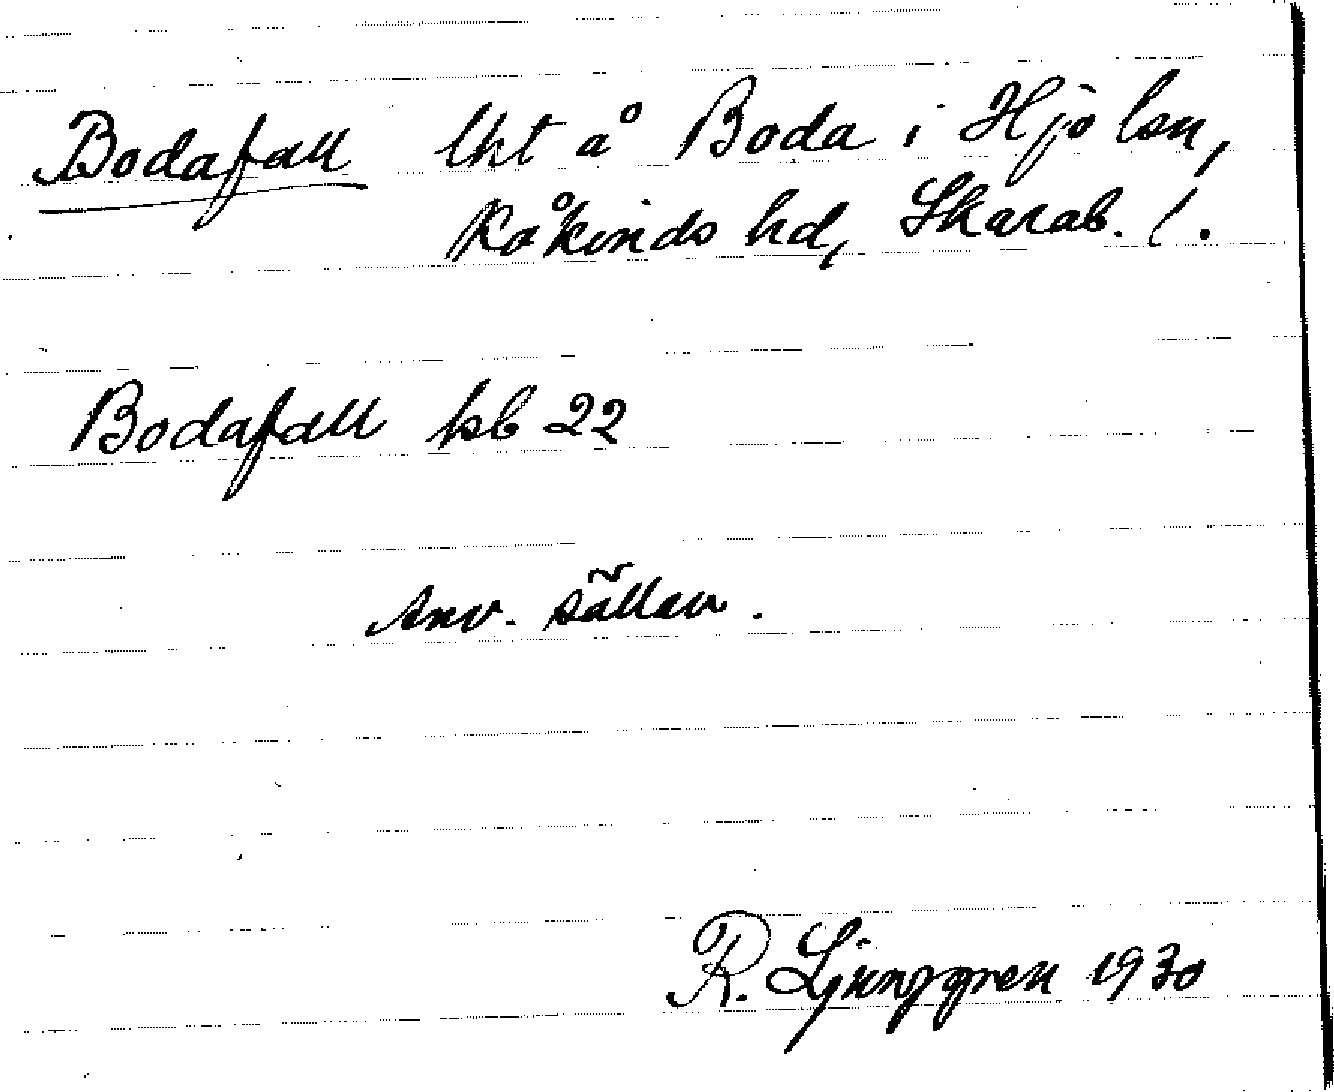 Bodafall lht å Boda i Hjo lsn,
Kåkinds hd, Skarab. l.
Bodafall kb 22
Anv. sällan.
R. Ljunggren 1930